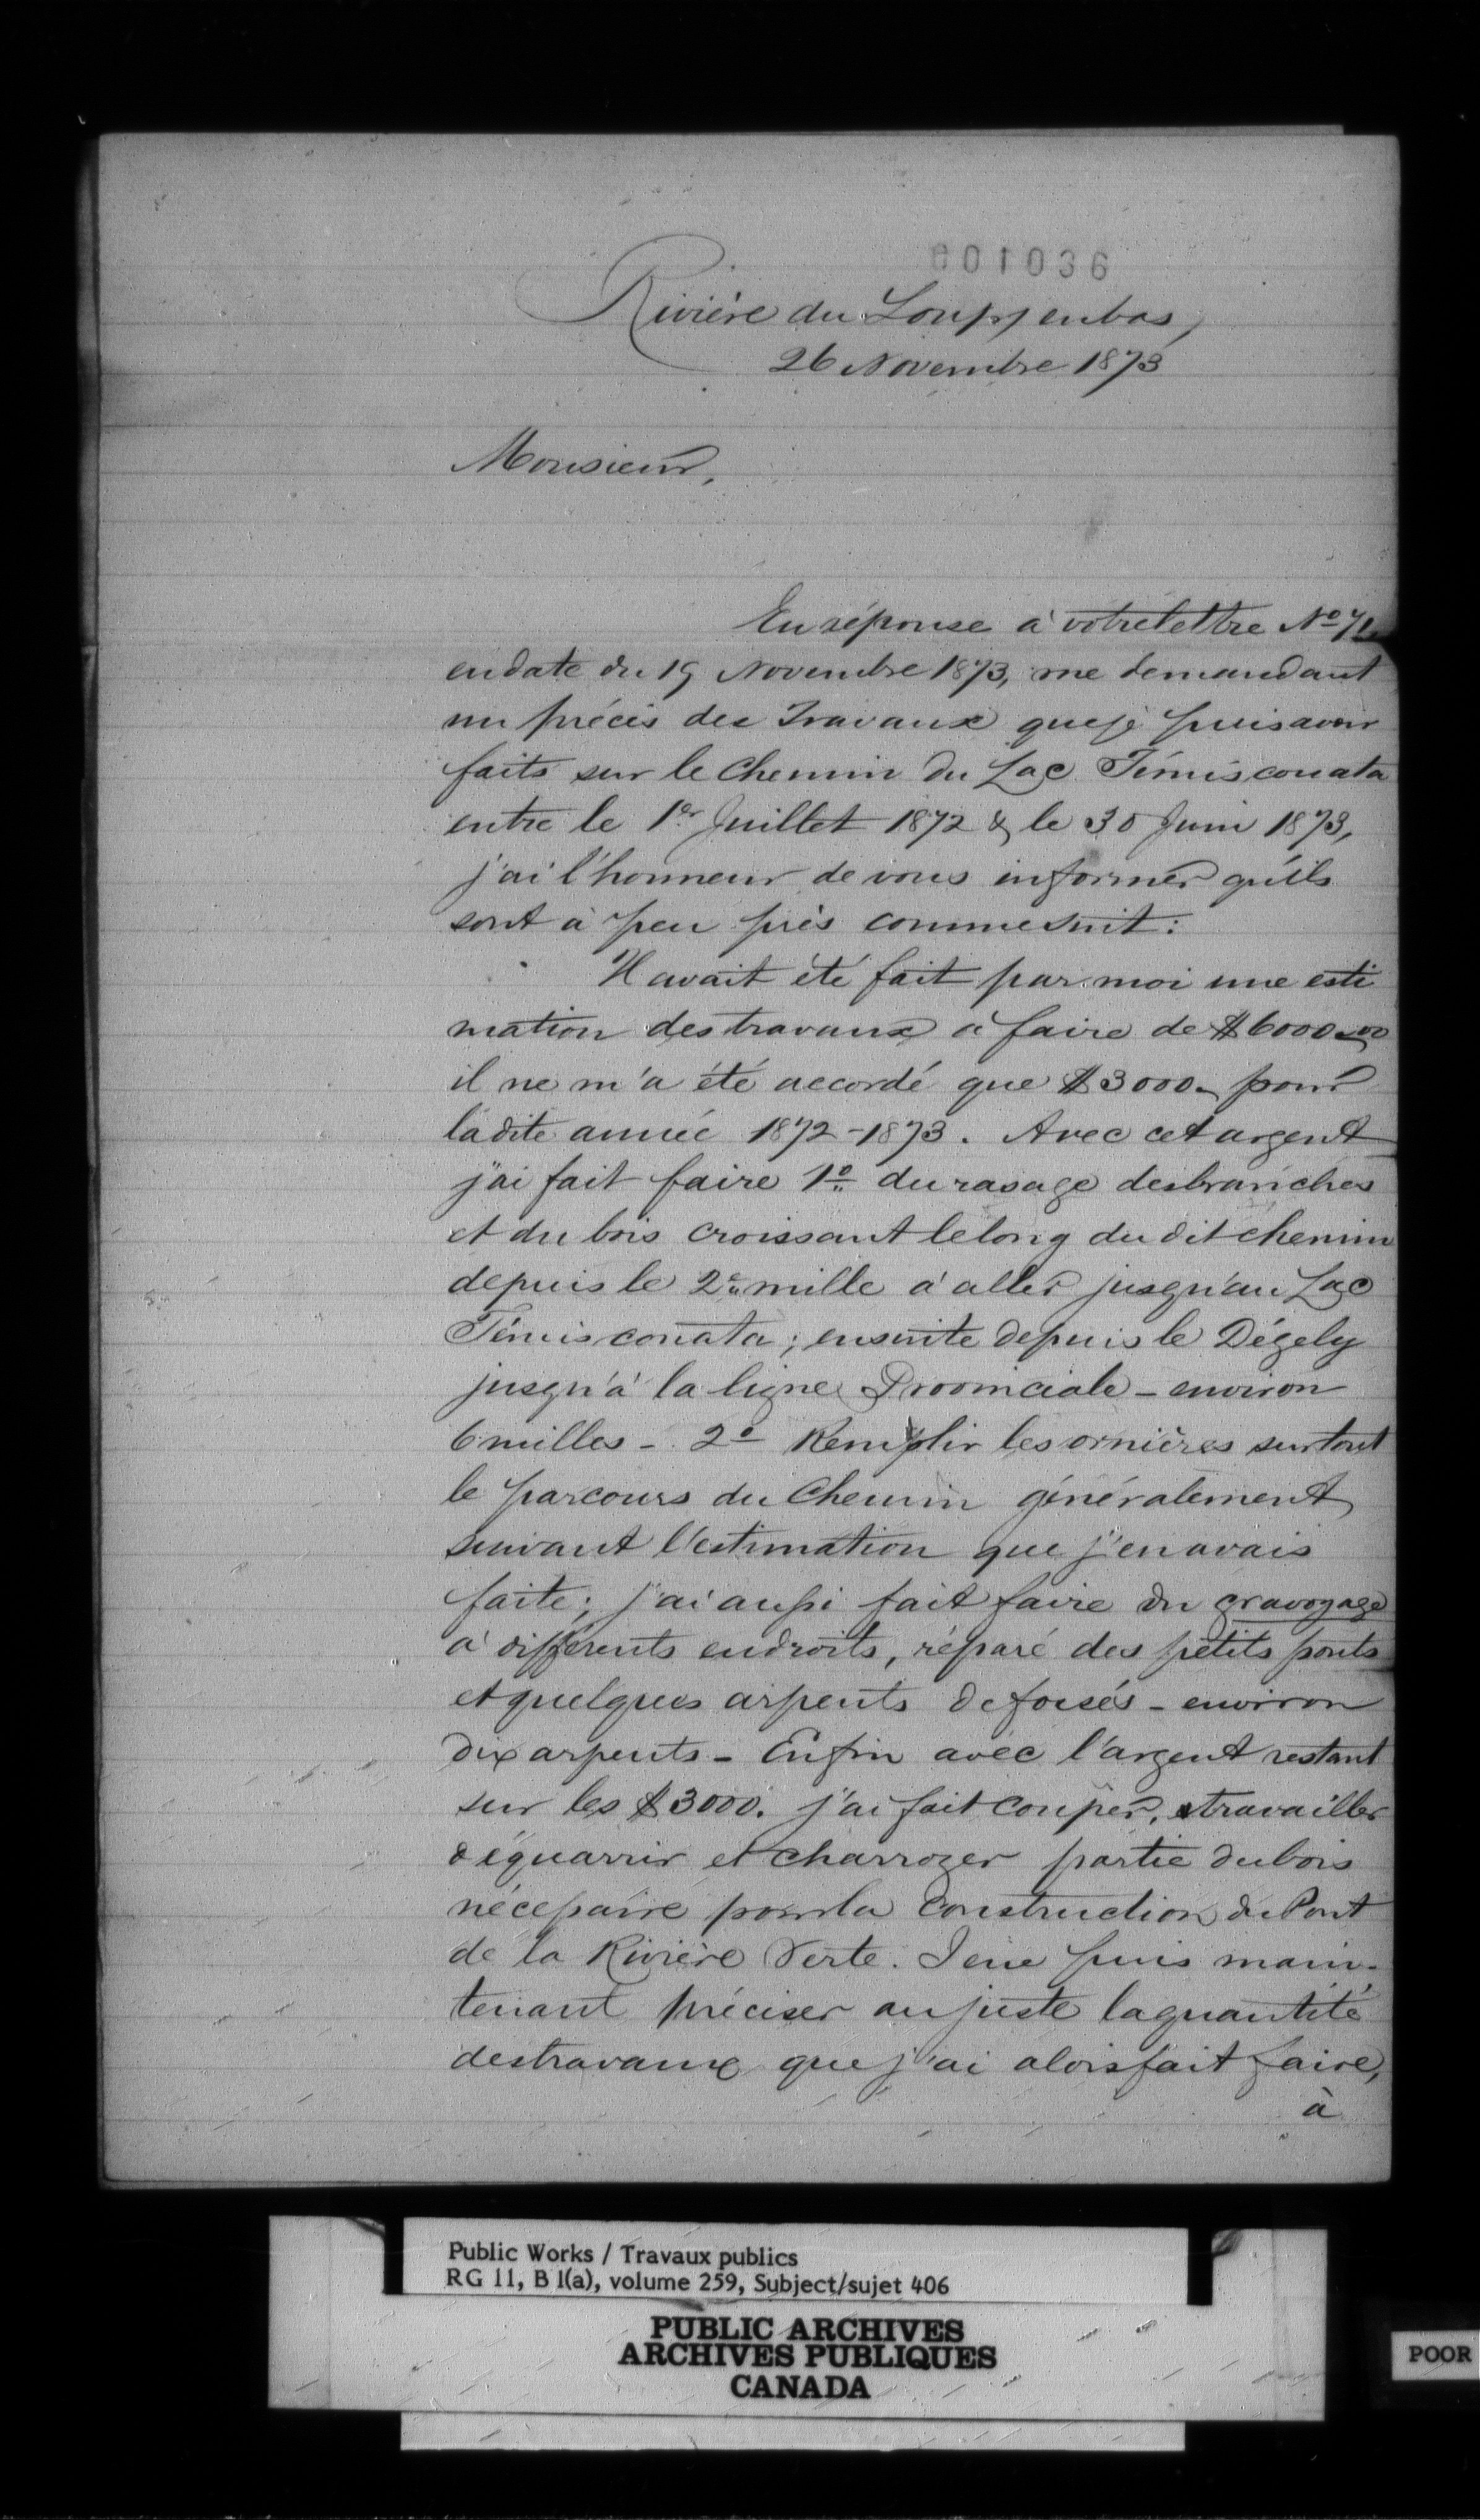 001036
Rivière du Loup, en bas,
26 Novembre 1873
Monsieur,
En réponse à votre lettre No 71
en date du 19 Novembre 1873, me demandant
un précis des Travaux que je puis avoir
faits sur le Chemin du Lac Témisconata
entre le 1er Juillet 1872 & le 30 Juin 1873,
j'ai l'honneur de vous informer qu'ils
sont à peu près comme suit:
Il avait été fait par moi une esti
mation des travaux à faire de $6000.00
il ne m'a été accordé que $3000. pour
la dite année 1872-1873. Avec cet argent
j'ai fait faire 1o du rasage des branches
et du bois croissant le long du dit chemin
depuis le 2e mille à aller jusqu'au Lac
Témisconata; ensuite depuis le Dégely
jusqu'à la ligne Provinciale - environ
6 milles - 2o Remplir les ornières sur tout
le parcours du Chemin généralement
suivant l'estimation que j'en avais
faite; j'ai aussi fait faire du gravoyage
à différents endroits, réparé des petits ponts
et quelques arpents de fossés - environ
dix arpents - Enfin avec l'argent restant
sur les $3000. j'ai fait couper, travailler
équarrir et charroyer partie du bois
nécessaire pour la Construction du Pont
de la Rivière Verte. Je ne puis main-
tenant préciser au juste la quantité
des travaux que j'ai alors fait faire,
à
Public Works / Travaux publics
RG 11, B 1(a), volume 259, Subject/sujet 406
PUBLIC ARCHIVES
ARCHIVES PUBLIQUES
CANADA
POOR